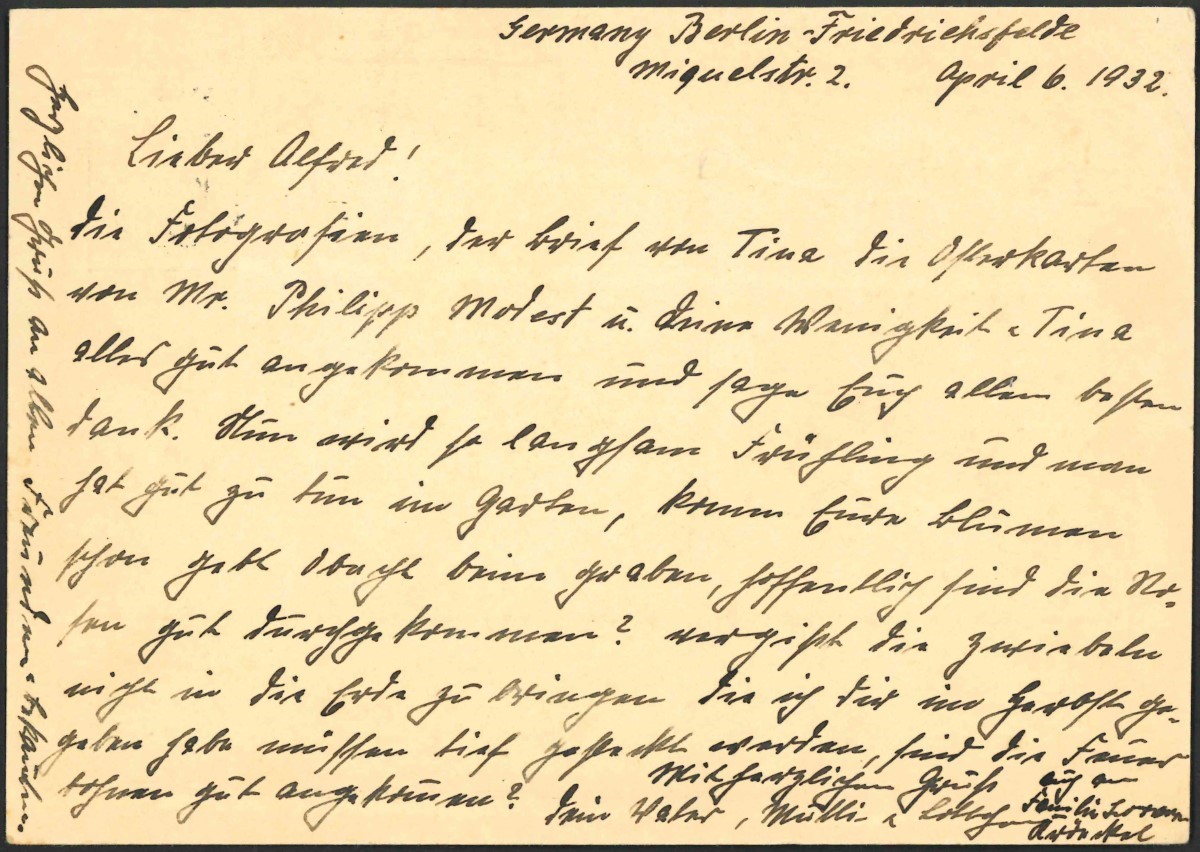 Germany Berlin-Friedrichsfelde
Miquelstr. 2. April 6. 1932.
Lieber Alfred!
die Fotografien, der Brief von Tina die Osterkarten
von Mr. Philipp Modest u. deine Wenigkeit u Tina
alles gut angekommen und sage Euch allen besten
dank. Nun wird so langsam Frühling und man
hat gut zu tun im Garten, komm Eure Blumen
schon gebt Obacht beim graben, hoffentlich sind die Ro-
sen gut durchgekommen? vergißt die Zwiebeln
nicht in die Erde zu bringen die ich dir im Herbst ge-
geben habe müssen tief gesteckt werden, sind die Feuer
bohnen gut angekommen?
Mit herzlichem Gruß auch an
dein Vater, Mutti u Familie
Herzlichen Gruß an allen Freunden u bekannten.